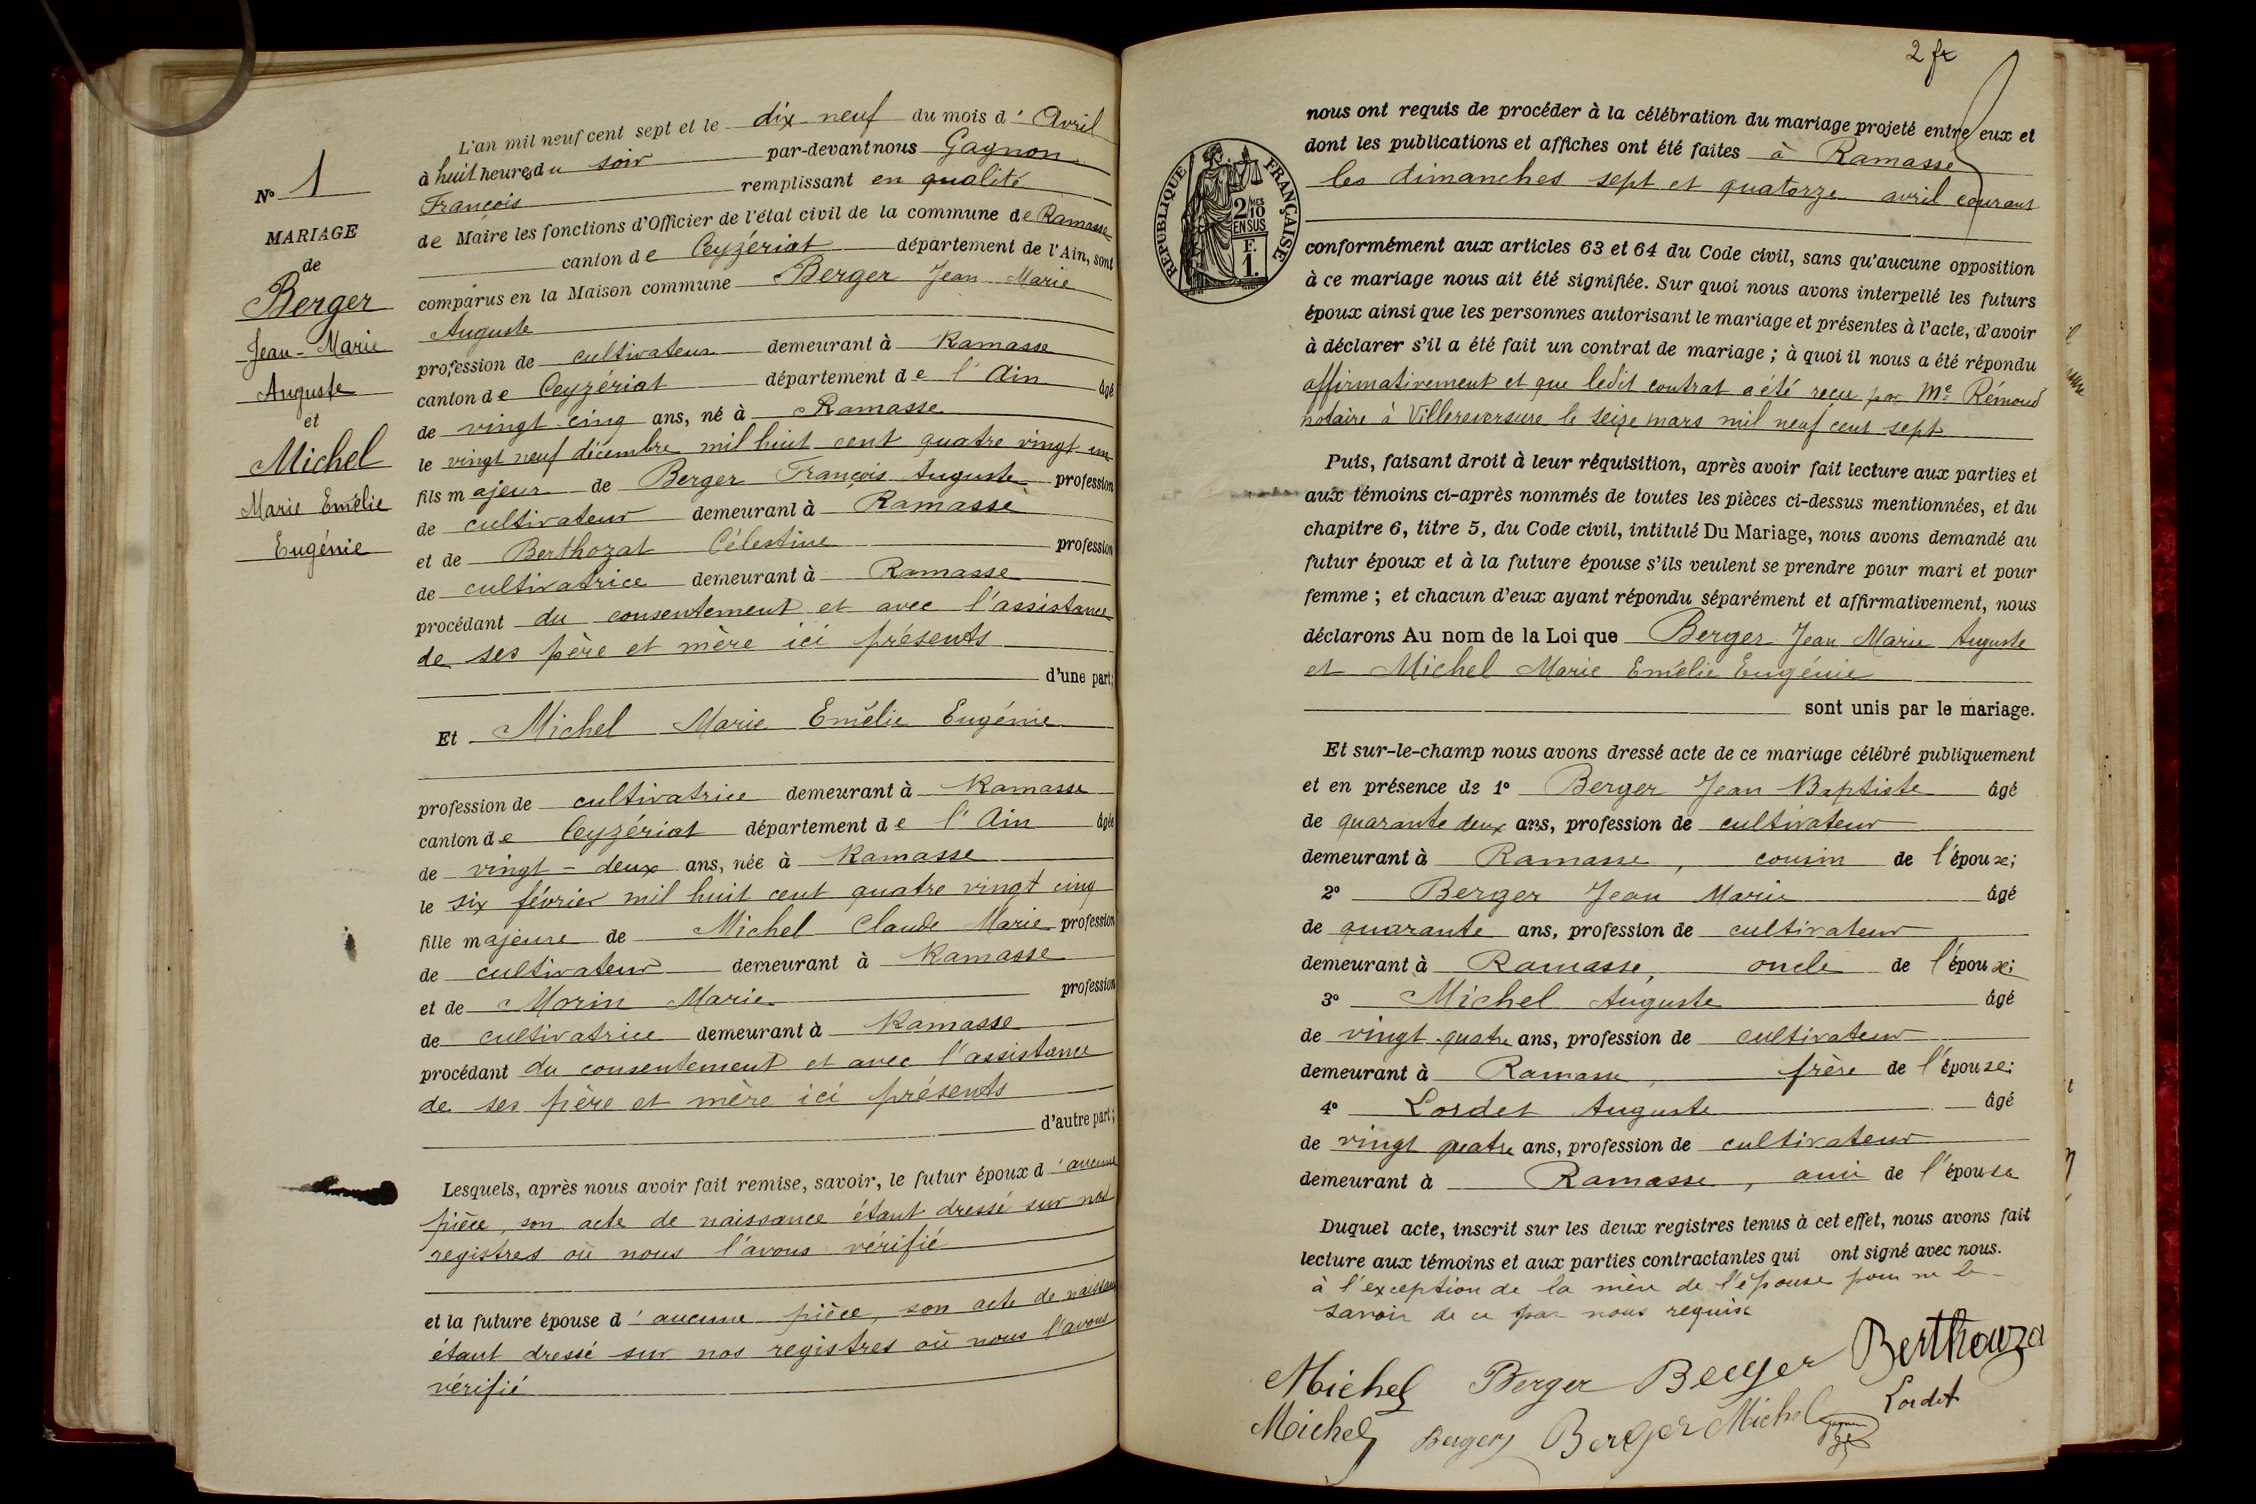 N° 1
MARIAGE
de
Berger
Jean-Marie
Auguste
et
Michel
Marie Emélie
Eugénie
L'an mil neuf cent sept et le dix-neuf du mois d'Avril
à huit heures du soir par-devant nous Gagnon
François remplissant en qualité
de Maire les fonctions d'Officier de l'état civil de la commune de Ramasse
canton de Ceyzériat département de l'Ain, sont
comparus en la Maison commune Berger Jean Marie
Auguste
profession de cultivateur demeurant à Ramasse
canton de Ceyzériat département de l'Ain âgé
de vingt-cinq ans, né à Ramasse
le vingt neuf décembre mil huit cent quatre vingt un
fils majeur de Berger François Auguste profession
de cultivateur demeurant à Ramasse
et de Berthozat Célestine profession
de cultivatrice demeurant à Ramasse
procédant du consentement et avec l'assistance
de ses père et mère ici présents
d'une part;
Et Michel Marie Emélie Eugénie
profession de cultivatrice demeurant à Ramasse
canton de Ceyzériat département de l'Ain âgée
de vingt-deux ans, née à Ramasse
le six février mil huit cent quatre vingt cinq
fille majeure de Michel Claude Marie profession
de cultivateur demeurant à Ramasse
et de Morin Marie profession
de cultivatrice demeurant à Ramasse
procédant du consentement et avec l'assistance
de ses père et mère ici présents
d'autre part;
Lesquels, après nous avoir fait remise, savoir, le futur époux d'aucune
pièce, son acte de naissance étant dressé sur nos
registres où nous l'avons vérifié
et la future épouse d'aucune pièce, son acte de naissance
étant dressé sur nos registres où nous l'avons
vérifié
2 fr
RÉPUBLIQUE FRANÇAISE
2/10 MES
EN SUS
F.
1.
nous ont requis de procéder à la célébration du mariage projeté entre eux et
dont les publications et affiches ont été faites à Ramasse
les dimanches sept et quatorze avril courant
conformément aux articles 63 et 64 du Code civil, sans qu'aucune opposition
à ce mariage nous ait été signifiée. Sur quoi nous avons interpellé les futurs
époux ainsi que les personnes autorisant le mariage et présentes à l'acte, d'avoir
à déclarer s'il a été fait un contrat de mariage ; à quoi il nous a été répondu
affirmativement et que ledit contrat a été reçu par Me Rémond
notaire à Villereversure le seize mars mil neuf cent sept
Puis, faisant droit à leur réquisition, après avoir fait lecture aux parties et
aux témoins ci-après nommés de toutes les pièces ci-dessus mentionnées, et du
chapitre 6, titre 5, du Code civil, intitulé Du Mariage, nous avons demandé au
futur époux et à la future épouse s'ils veulent se prendre pour mari et pour
femme ; et chacun d'eux ayant répondu séparément et affirmativement, nous
déclarons Au nom de la Loi que Berger Jean Marie Auguste
et Michel Marie Emélie Eugénie
sont unis par le mariage.
Et sur-le-champ nous avons dressé acte de ce mariage célébré publiquement
et en présence de 1° Berger Jean Baptiste âgé
de quarante deux ans, profession de cultivateur
demeurant à Ramasse, cousin de l'époux;
2° Berger Jean Marie âgé
de quarante ans, profession de cultivateur
demeurant à Ramasse, oncle de l'époux;
3° Michel Auguste âgé
de vingt quatre ans, profession de cultivateur
demeurant à Ramasse, frère de l'épouse;
4° Lordet Auguste âgé
de vingt quatre ans, profession de cultivateur
demeurant à Ramasse, ami de l'épouse
Duquel acte, inscrit sur les deux registres tenus à cet effet, nous avons fait
lecture aux témoins et aux parties contractantes qui ont signé avec nous.
à l'exception de la mère de l'épouse pour ne le
savoir de ce par nous requise
Michel Berger Berger Berthouza
Michel Berger Berger Michel Lordet